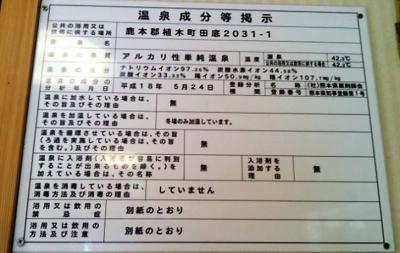 温泉成分等掲示
公共の浴用又は
飲用に供する場所
鹿本郡植木町田底2031-1
アルカリ性単純温泉
温度
源泉 42.3℃
42.3℃
温泉の成分
ナトリウムイオン97.25% 炭酸水素イオン44.58%
炭酸イオン33.32% 陽イオン50.9mg/kg 陰イオン107.7mg/kg
分析年月日
平成18年 5月24日
登録分析機関の名称
(社)熊本県薬剤師会
熊本県知事登録第1号
温泉に加水している場合は、
その旨及びその理由
無
温泉を加温している場合は、
その旨及びその理由
冬場のみ加温しています。
温泉を循環させている場合は、その旨
(ろ過を実施している場合は、その旨
を含む。)及びその理由
無
温泉に入浴剤(入浴者が容易に判別
することが出来るものを除く。)を
加えている場合は、その名称
無
入浴剤を
添加する
理由
無
温泉を消毒している場合は、
消毒方法及び消毒の理由
していません
浴用又は飲用の
禁忌症
別紙のとおり
浴用又は飲用の
方法及び注意
別紙のとおり